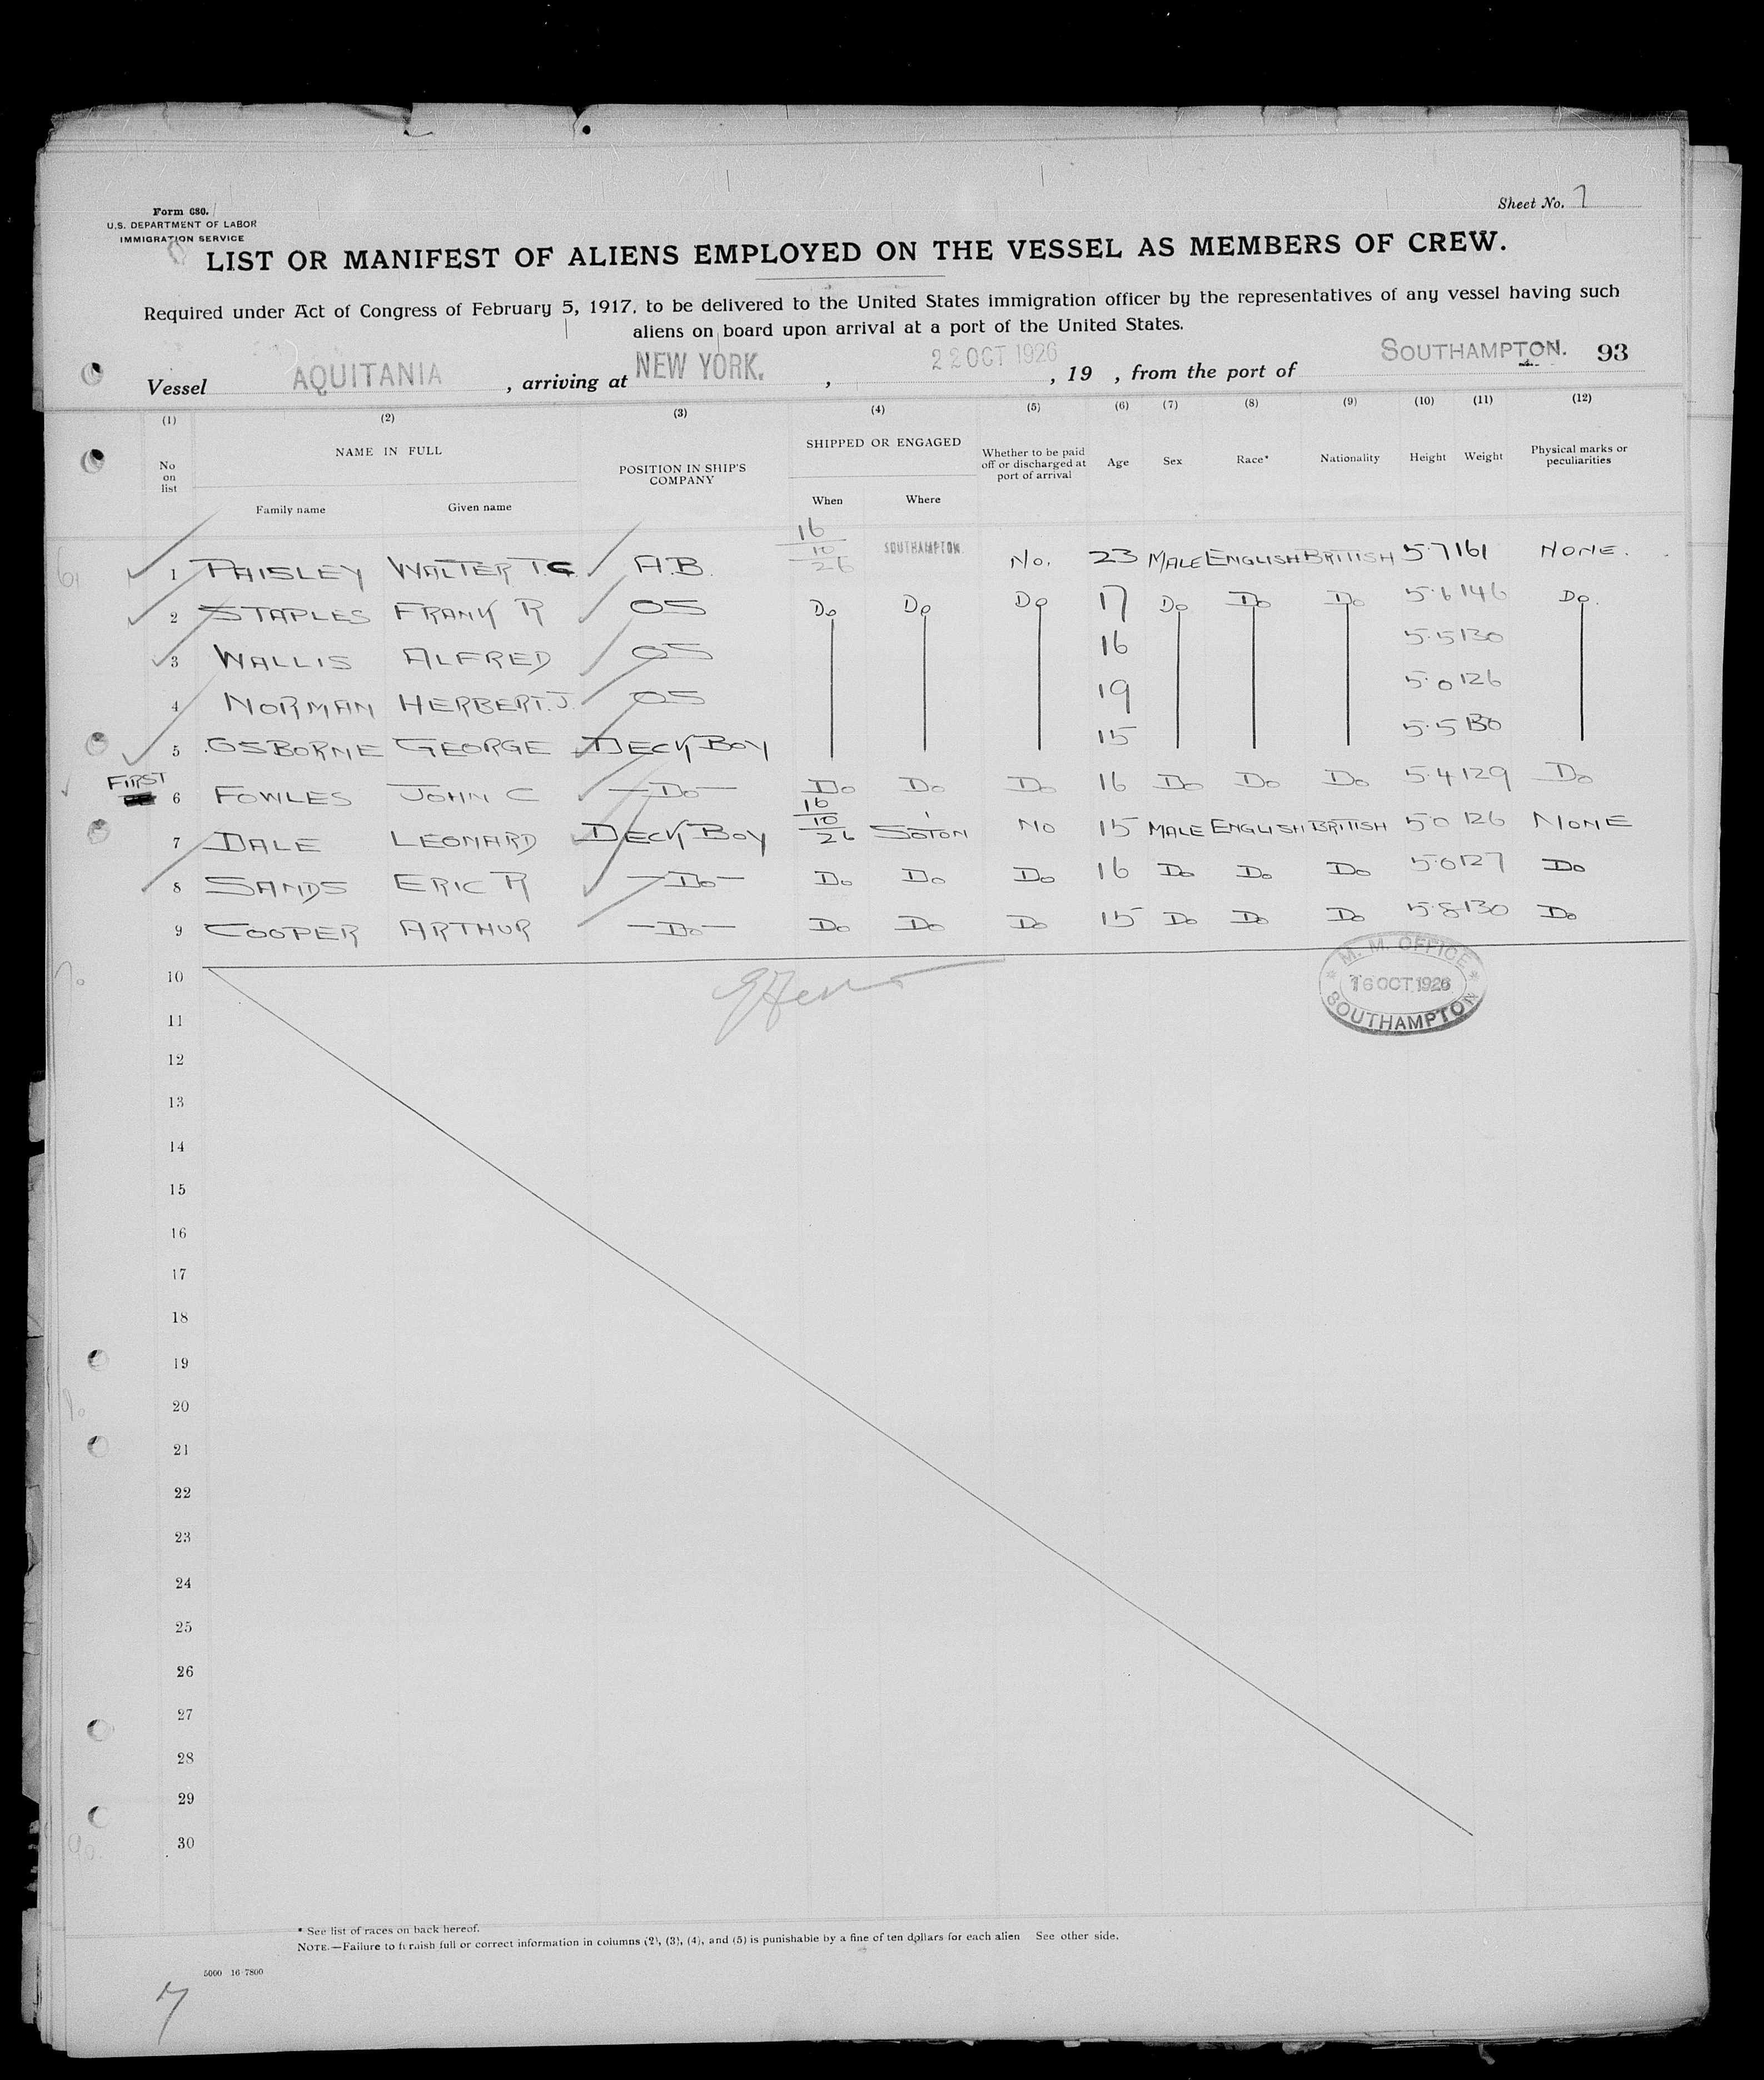 Form 680.
U.S. DEPARTMENT OF LABOR
IMMIGRATION SERVICE
Sheet No. 7
LIST OR MANIFEST OF ALIENS EMPLOYED ON THE VESSEL AS MEMBERS OF CREW.
Required under Act of Congress of February 5, 1917, to be delivered to the United States immigration officer by the representatives of any vessel having such
aliens on board upon arrival at a port of the United States.
Vessel AQUITANIA, arriving at NEW YORK., 22 OCT 1926, 19 , from the port of SOUTHAMPTON. 93
(1) (2) (3) (4) (5) (6) (7) (8) (9) (10) (11) (12)
No on list NAME IN FULL POSITION IN SHIP'S COMPANY SHIPPED OR ENGAGED Whether to be paid off or discharged at port of arrival Age Sex Race* Nationality Height Weight Physical marks or peculiarities
Family name Given name When Where
1 PAISLEY WALTER T.G. A.B. 16/10/26 SOUTHAMPTON. No. 23 MALE ENGLISH BRITISH 5.7 161 NONE.
2 STAPLES FRANK R OS Do Do Do 17 Do Do Do 5.6 146 Do.
3 WALLIS ALFRED OS 16 5.5 130
4 NORMAN HERBERT.J. OS 19 5.0 126
5 OSBORNE GEORGE DECK BOY 15 5.5 130
FIRST 6 FOWLES JOHN C —Do— Do Do Do 16 Do Do Do 5.4 129 Do
7 DALE LEONARD DECK BOY 16/10/26 SOTON NO 15 MALE ENGLISH BRITISH 5.0 126 NONE
8 SANDS ERIC R —Do— Do Do Do 16 Do Do Do 5.0 127 Do
9 COOPER ARTHUR —Do— Do Do Do 15 Do Do Do 5.8 130 Do
M. M. OFFICE
16 OCT 1926
SOUTHAMPTON
10
11
12
13
14
15
16
17
18
19
20
21
22
23
24
25
26
27
28
29
30
* See list of races on back hereof.
NOTE.—Failure to furnish full or correct information in columns (2), (3), (4), and (5) is punishable by a fine of ten dollars for each alien See other side.
5000 16-7800
7